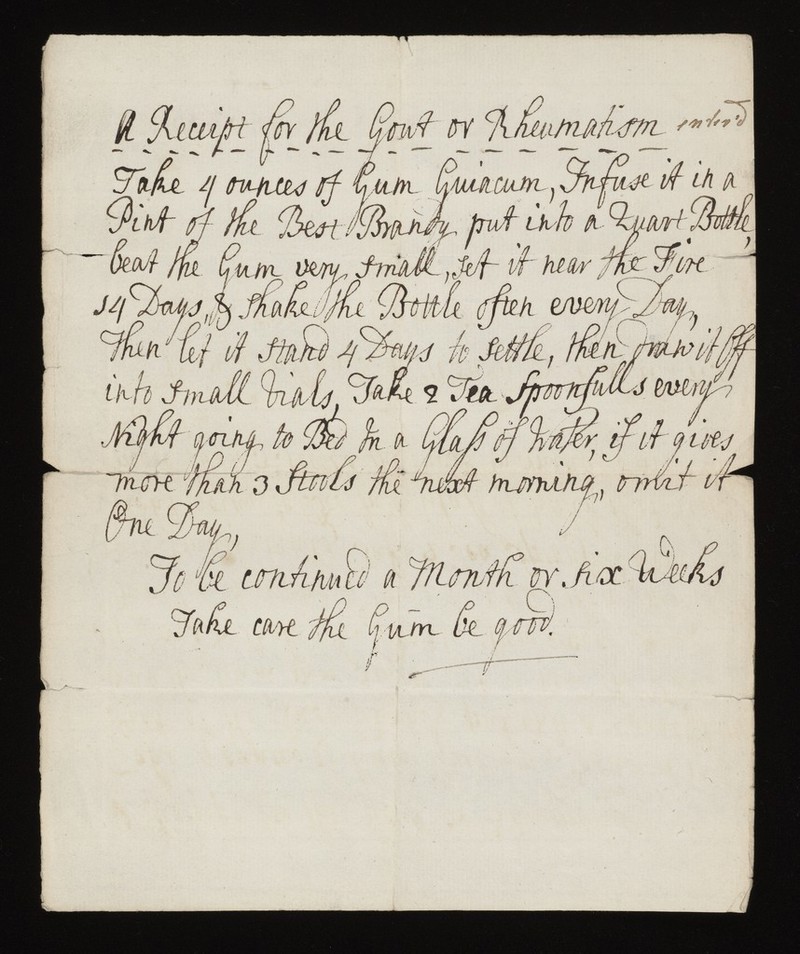 A Receipt for the Gout or Rheumatism enter'd
Take 4 ounces of Gum Guiacum, Infuse it in a
Pint of the Best Brandy put into a Quart Bottle,
beat the Gum very small, set it near the Fire
14 Days, & shake the Bottle often every Day,
then let it stand 4 Days to settle, then draw it Off
into small Vials, Take 2 Tea Spoonfulls every
Night going to Bed In a Glass of Water, if it gives
more than 3 Stools the next morning, omit it
One Day,
To be continued a Month or six Weeks
Take care the Gum be good.